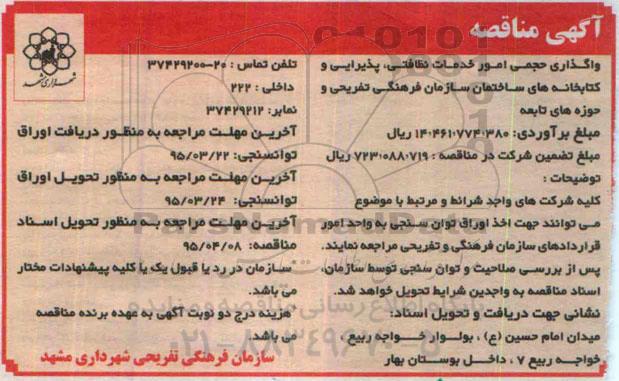 آگهی مناقصه
شهرداری مشهد
واگذاری حجمی امور خدمات نظافتی، پذیرایی و
کتابخانه های ساختمان سازمان فرهنگی تفریحی و
حوزه های تابعه
مبلغ برآوردی: ۱۴۰۴۶۱۰۷۷۴۰۳۸۰ ریال
مبلغ تضمین شرکت در مناقصه : ۷۲۳۰۸۸۰۷۱۹ ریال
توضیحات :
کلیه شرکت های واجد شرائط و مرتبط با موضوع
می توانند جهت اخذ اوراق توان سنجی به واحد امور
قراردادهای سازمان فرهنگی و تفریحی مراجعه نمایند.
پس از بررسی صلاحیت و توان سنجی توسط سازمان،
اسناد مناقصه به واجدین شرایط تحویل خواهد شد.
نشانی جهت دریافت و تحویل اسناد:
میدان امام حسین (ع) ، بولـوار خـواجه ربیع ،
خواجـه ربیع ۷ ، داخـل بوستان بهار
تلفن تماس : ۲۰-۳۷۴۲۹۲۰۰
داخلی : ۲۲۲
نمابر: ۳۷۴۲۹۲۱۲
آخریـن مهلـت مراجعه به منظـور دریافت اوراق
توانسنجی: ۹۵/۰۳/۲۲
آخریـن مهلت مراجعه بـه منظور تحویـل اوراق
توانسنجی: ۹۵/۰۳/۲۴
آخریـن مهلـت مراجعه بـه منظور تحویل اسـناد
مناقصه: ۹۵/۰۴/۰۸
سـازمان در رد یا قبول یک یا کلیه پیشنهادات مختار
می باشد.
هزینه درج دو نوبت آگهی به عهده برنده مناقصه
می باشد.
سازمان فرهنگی تفریحی شهرداری مشهد
ParsNamadData
پایگاه اطلاع رسانی مناقصه و مزایده